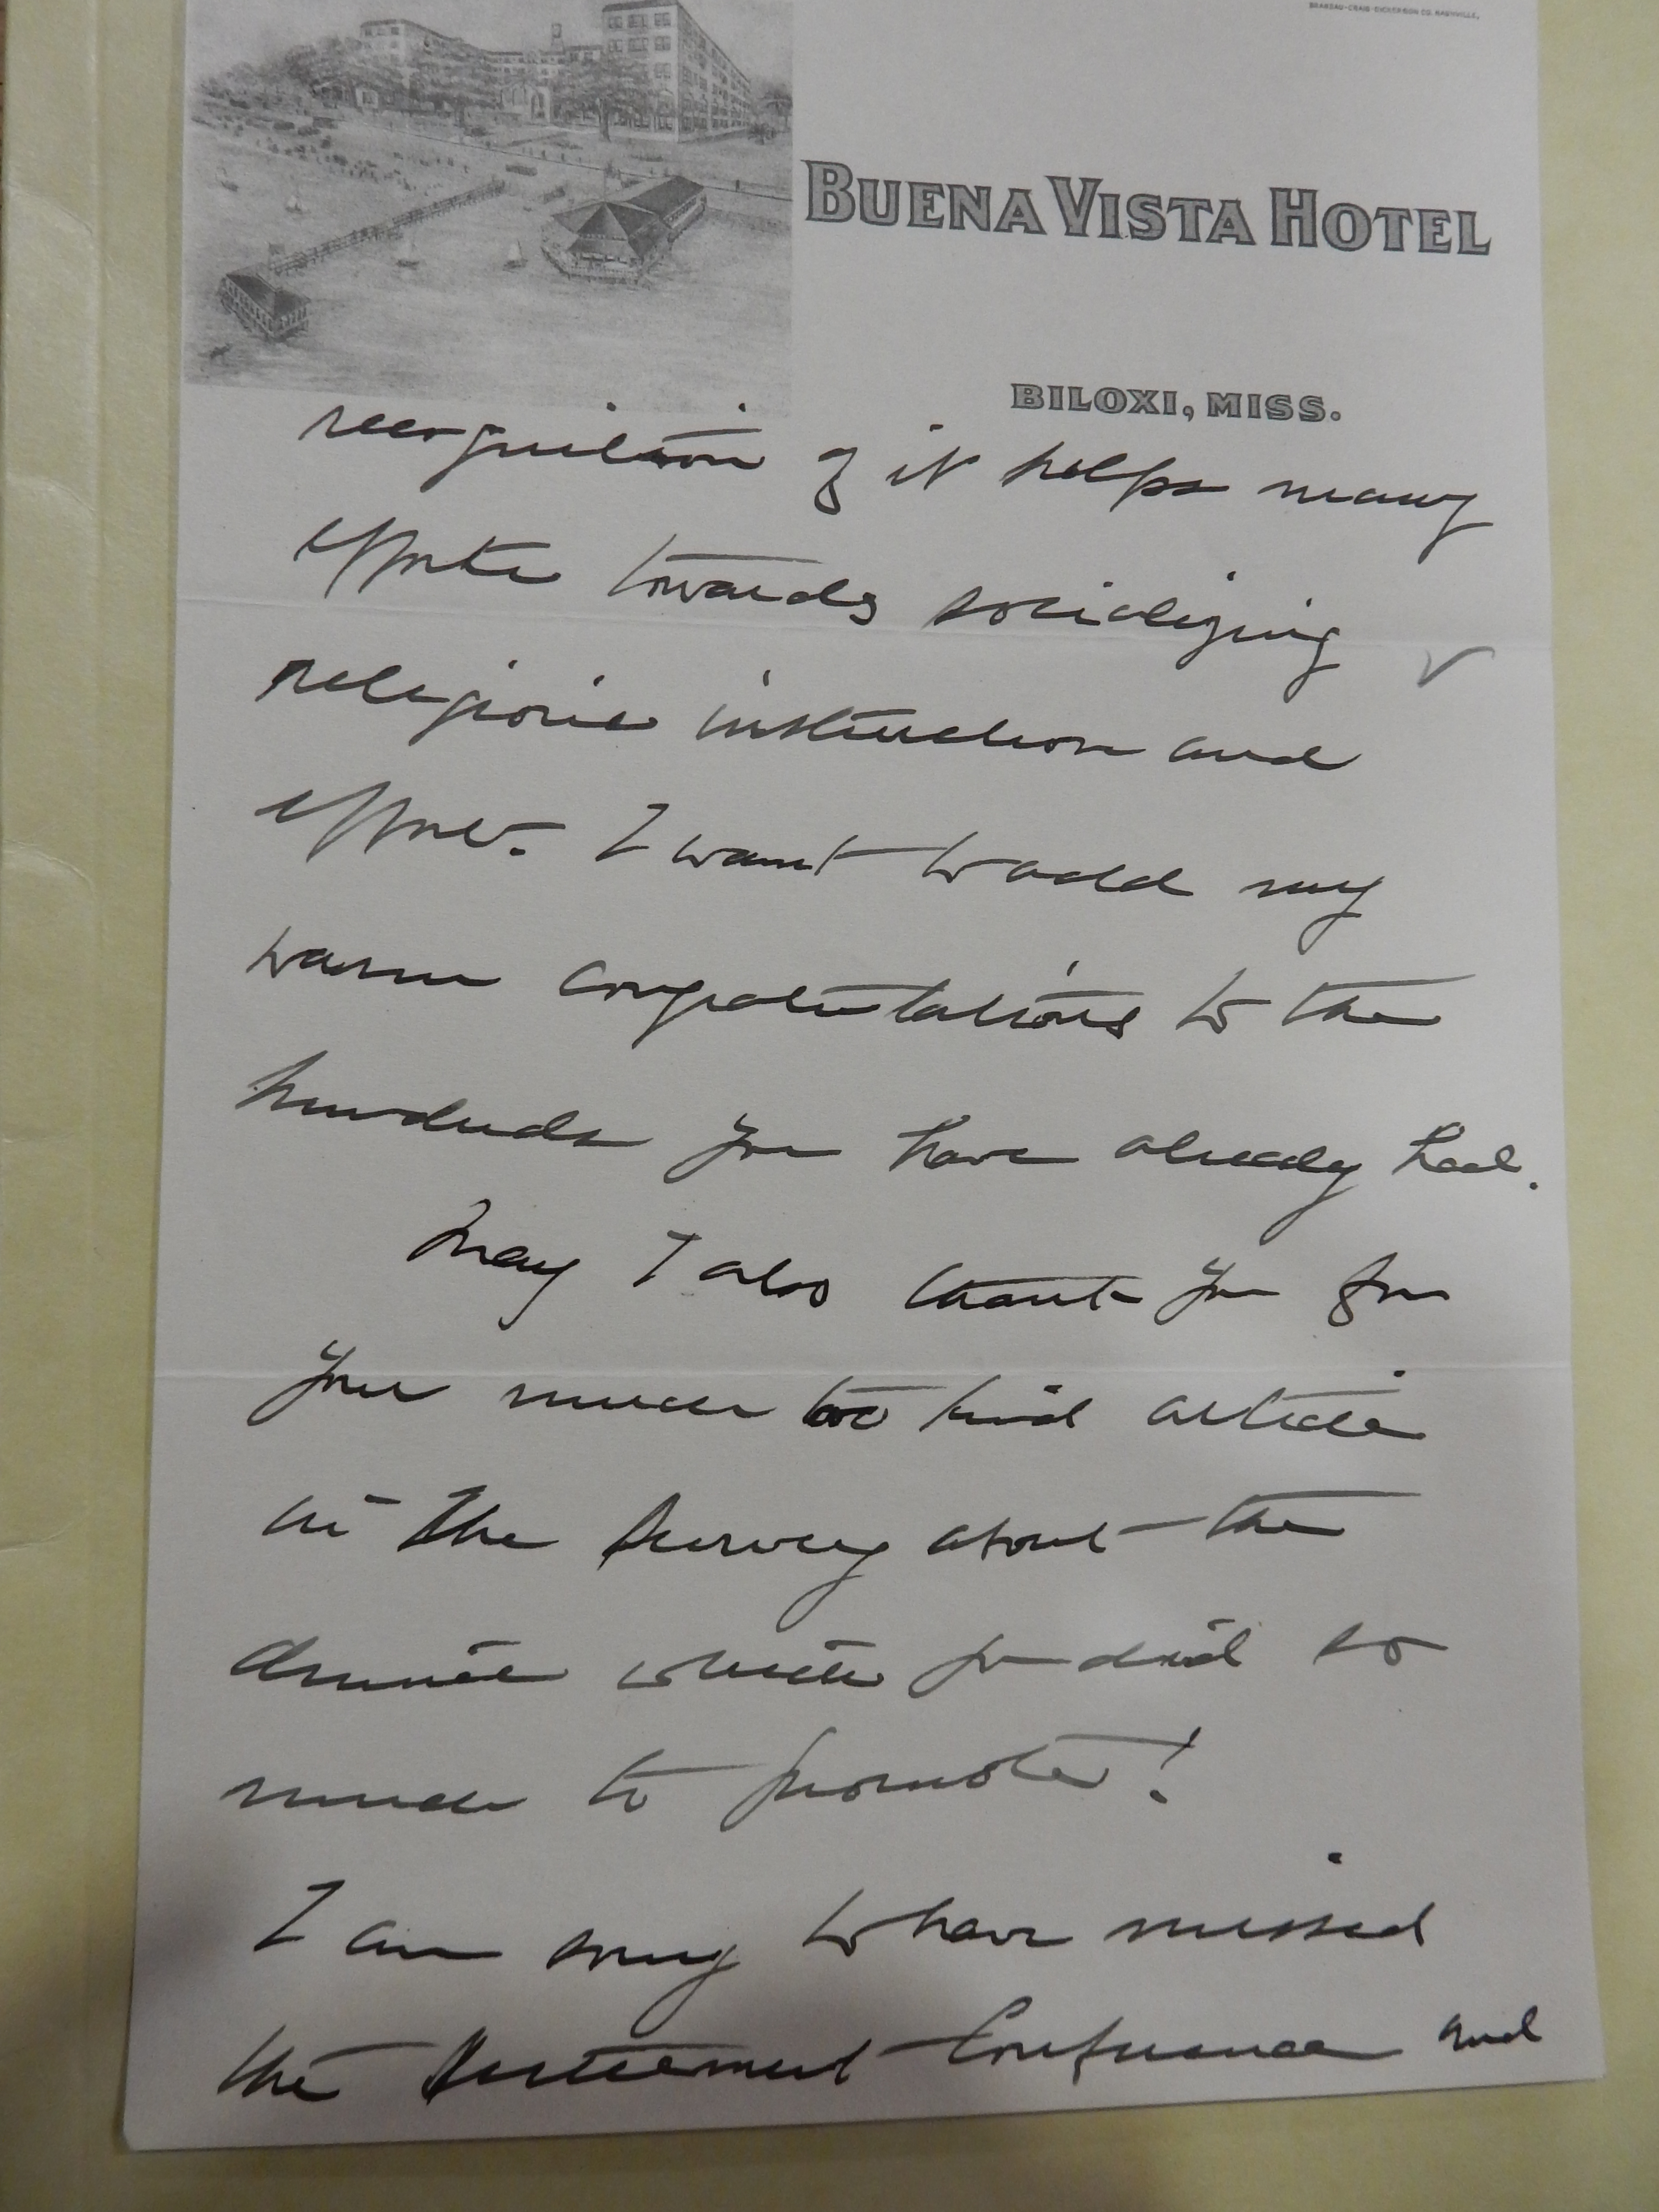 BRANDAU-CRAIG-DICKERSON CO. NASHVILLE,
BUENA VISTA HOTEL
BILOXI, MISS.
recognition of it helps many
efforts towards socializing
religious instruction and
effort. I want to add my
warm congratulations to the
hundreds you have already had.
May I also thank you for
your much too kind article
in the Survey about the
dinner which you did so
much to promote!
I am sorry to have missed
the Conference and